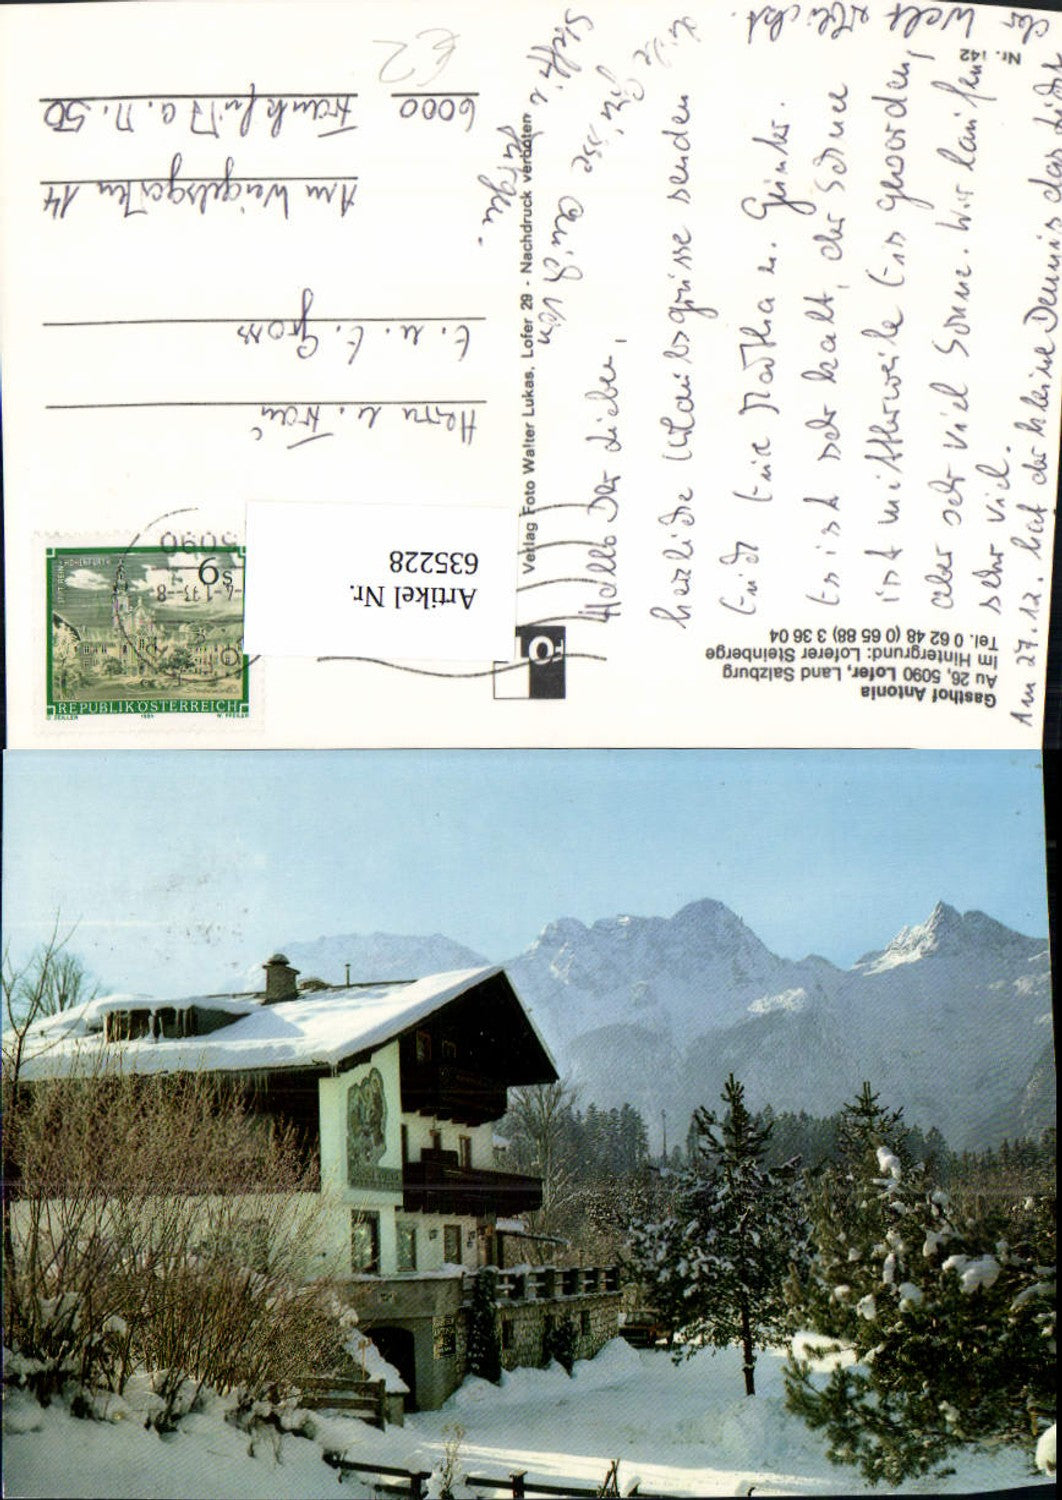 Gasthof Antonia
Au 26, 5090 Lofer, Land Salzburg
Im Hintergrund: Loferer Steinberge
Tel. 0 62 48 (0 65 88) 3 36 04
Nr. 142
Verlag Foto Walter Lukas, Lofer 29 - Nachdruck verboten
FOT
Artikel Nr.
635228
5090
S 9
STIFT REIN-HOHENFURTH
REPUBLIK ÖSTERREICH
O. ZEILLER 1984 W. PFEILER
Hallo Ihr Lieben,
herzliche Urlaubsgrüsse senden
Euch Eure Martha u. Günter.
Es ist sehr kalt, der Schnee
ist mittlerweile Eis geworden,
aber sehr viel Sonne. Wir laufen
sehr viel.
Am 27.12. hat der kleine Dennis das Licht
der Welt erblickt.
Viele Grüsse auch von
Steffi u. Jürgen.
Herrn u. Frau
E. u. E. Gross
Am Weigelsgarten 14
6000 Frankfurt a. M. 50
€2